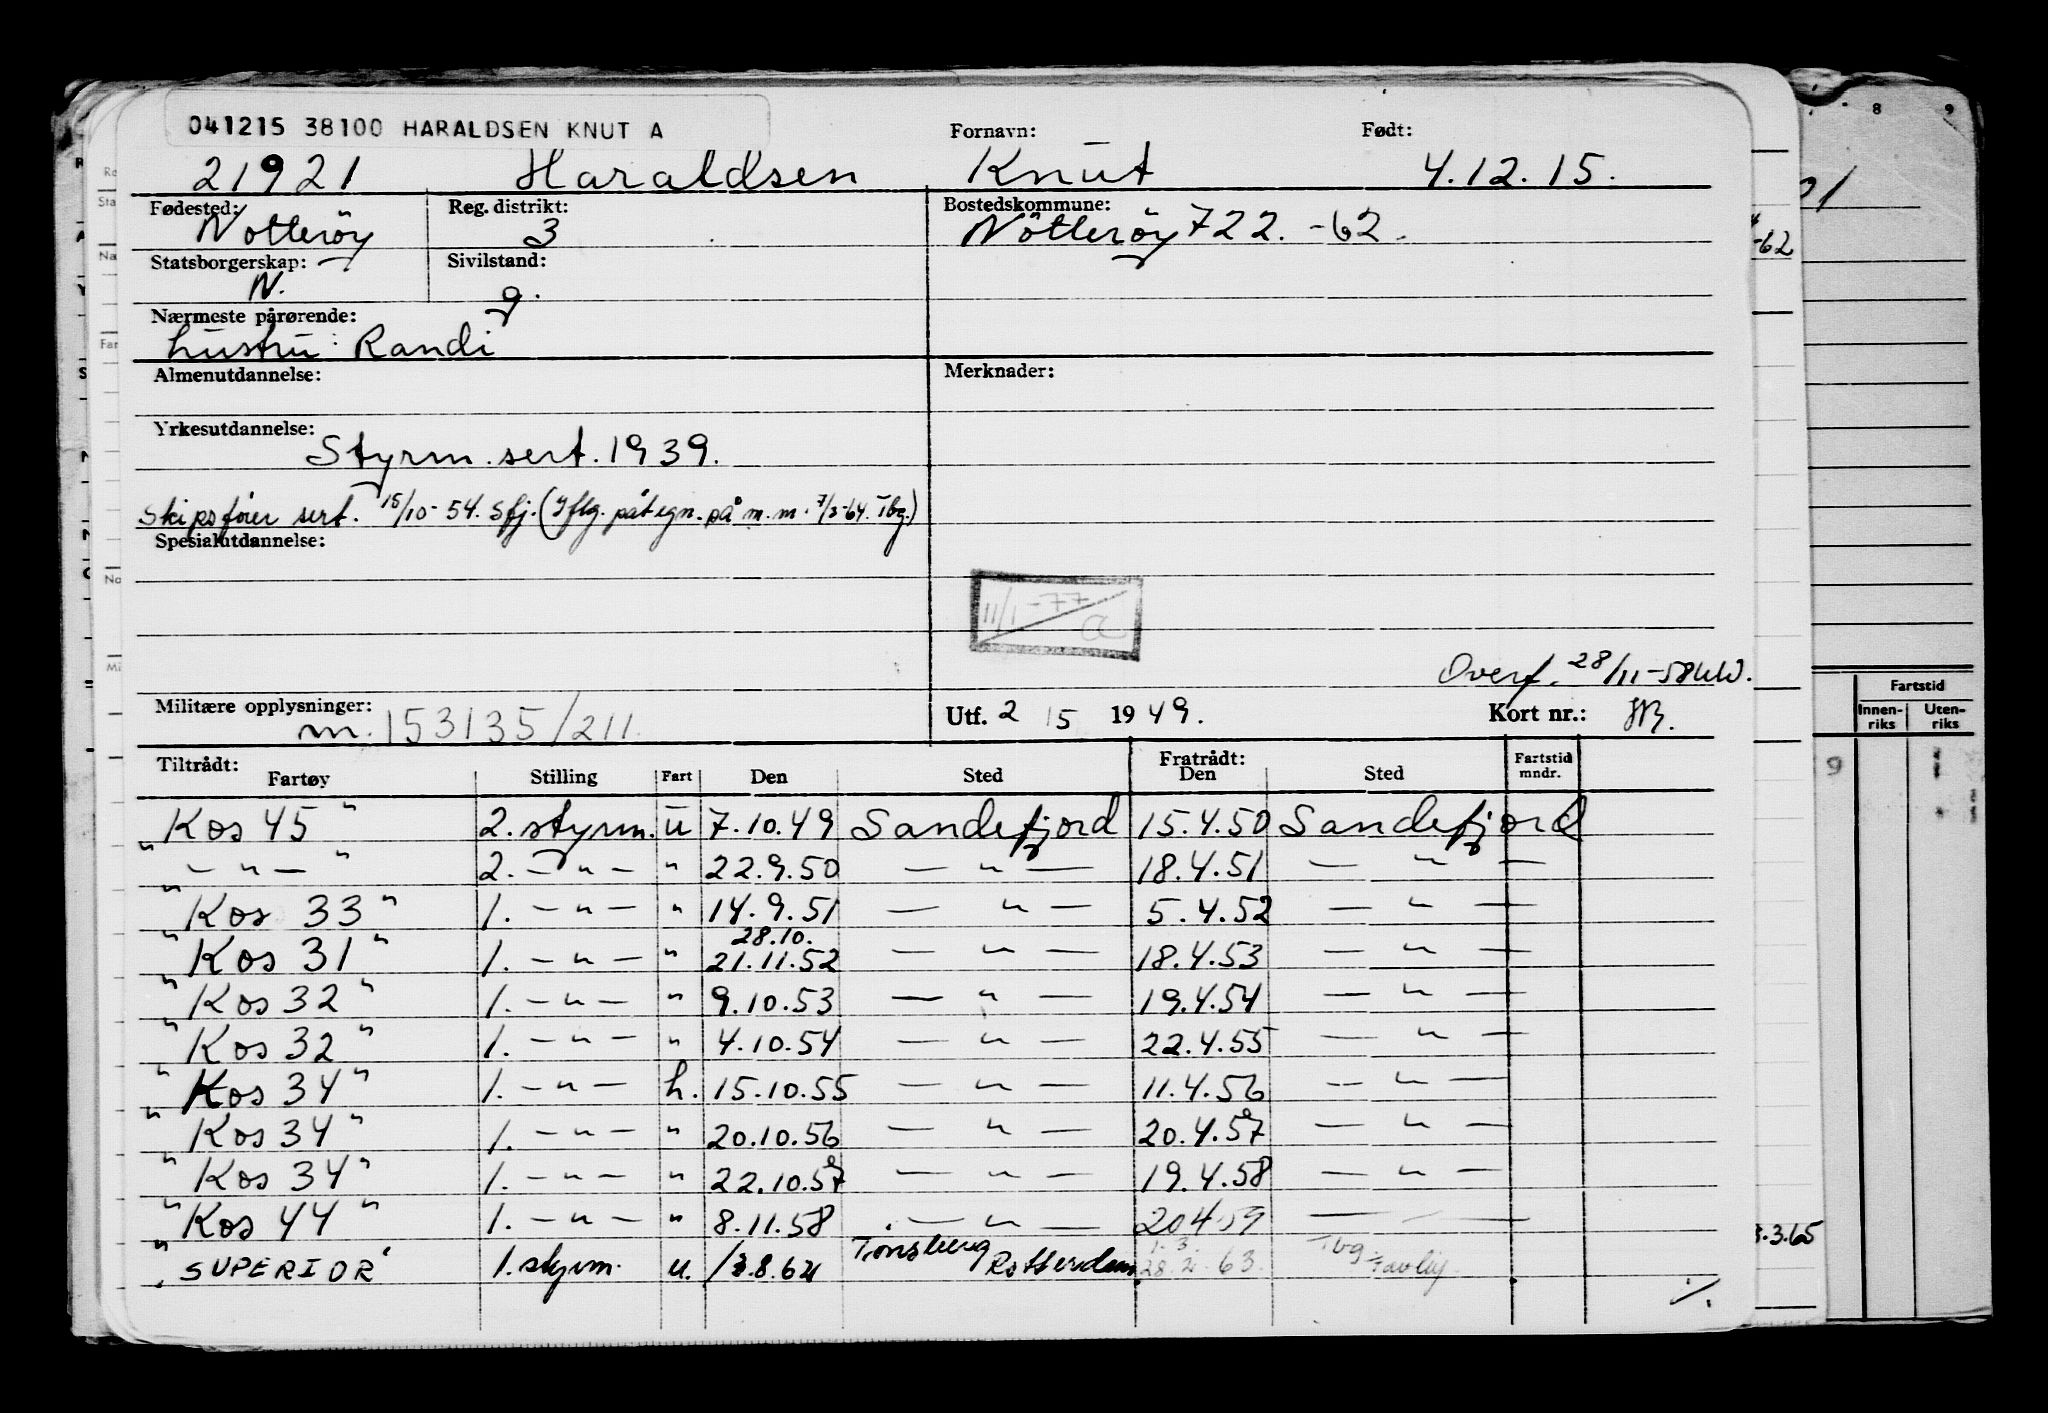 041215 38100 HARALDSEN KNUT A
Fornavn: Født:
21921 Haraldsen Knut 4.12.15.
Fødested: Reg. distrikt: Bostedskommune:
Nötteröy 3 Nötteröy 722. -62.
Statsborgerskap: Sivilstand:
N. g.
Nærmeste pårørende:
hustru: Randi
Almenutdannelse: Merknader:
Yrkesutdannelse:
Styrm. sert. 1939.
Skipsfører sert. 15/10-54. Sfj. (Iflg. påtegn. på m.m. 7/3-64. Tbg.)
Spesialutdannelse:
11/1-77
Overf. 28/11-58
Militære opplysninger: Utf. 2 15 1949. Kort nr.:
m. 153135/211.
Tiltrådt: Fratrådt: Fartstid
Fartøy Stilling Fart Den Sted Den Sted mndr.
"Kos 45" 2. styrm. u 7.10.49 Sandefjord 15.4.50 Sandefjord
" — " — " 2. — " — " 22.9.50 — " — 18.4.51 — " —
"Kos 33" 1. — " — " 14.9.51 — " — 5.4.52 — " —
28.10.
"Kos 31" 1. — " — " 21.11.52 — " — 18.4.53 — " —
"Kos 32" 1. — " — " 9.10.53 — " — 19.4.54 — " —
"Kos 32" 1. — " — " 4.10.54 — " — 22.4.55 — " —
"Kos 34" 1. — " — h. 15.10.55 — " — 11.4.56 — " —
"Kos 34" 1. — " — " 20.10.56 — " — 20.4.57 — " —
"Kos 34" 1. — " — " 22.10.57 — " — 19.4.58 — " —
"Kos 44" 1. — " — " 8.11.58 — " — 20 4 59 — " —
1.3. Tbg
"SUPERIOR" 1. styrm. u. Tønsberg Rotterdam 63.
8 9
-62
3.3.65
Fartstid
Innen-riks Uten-riks
9